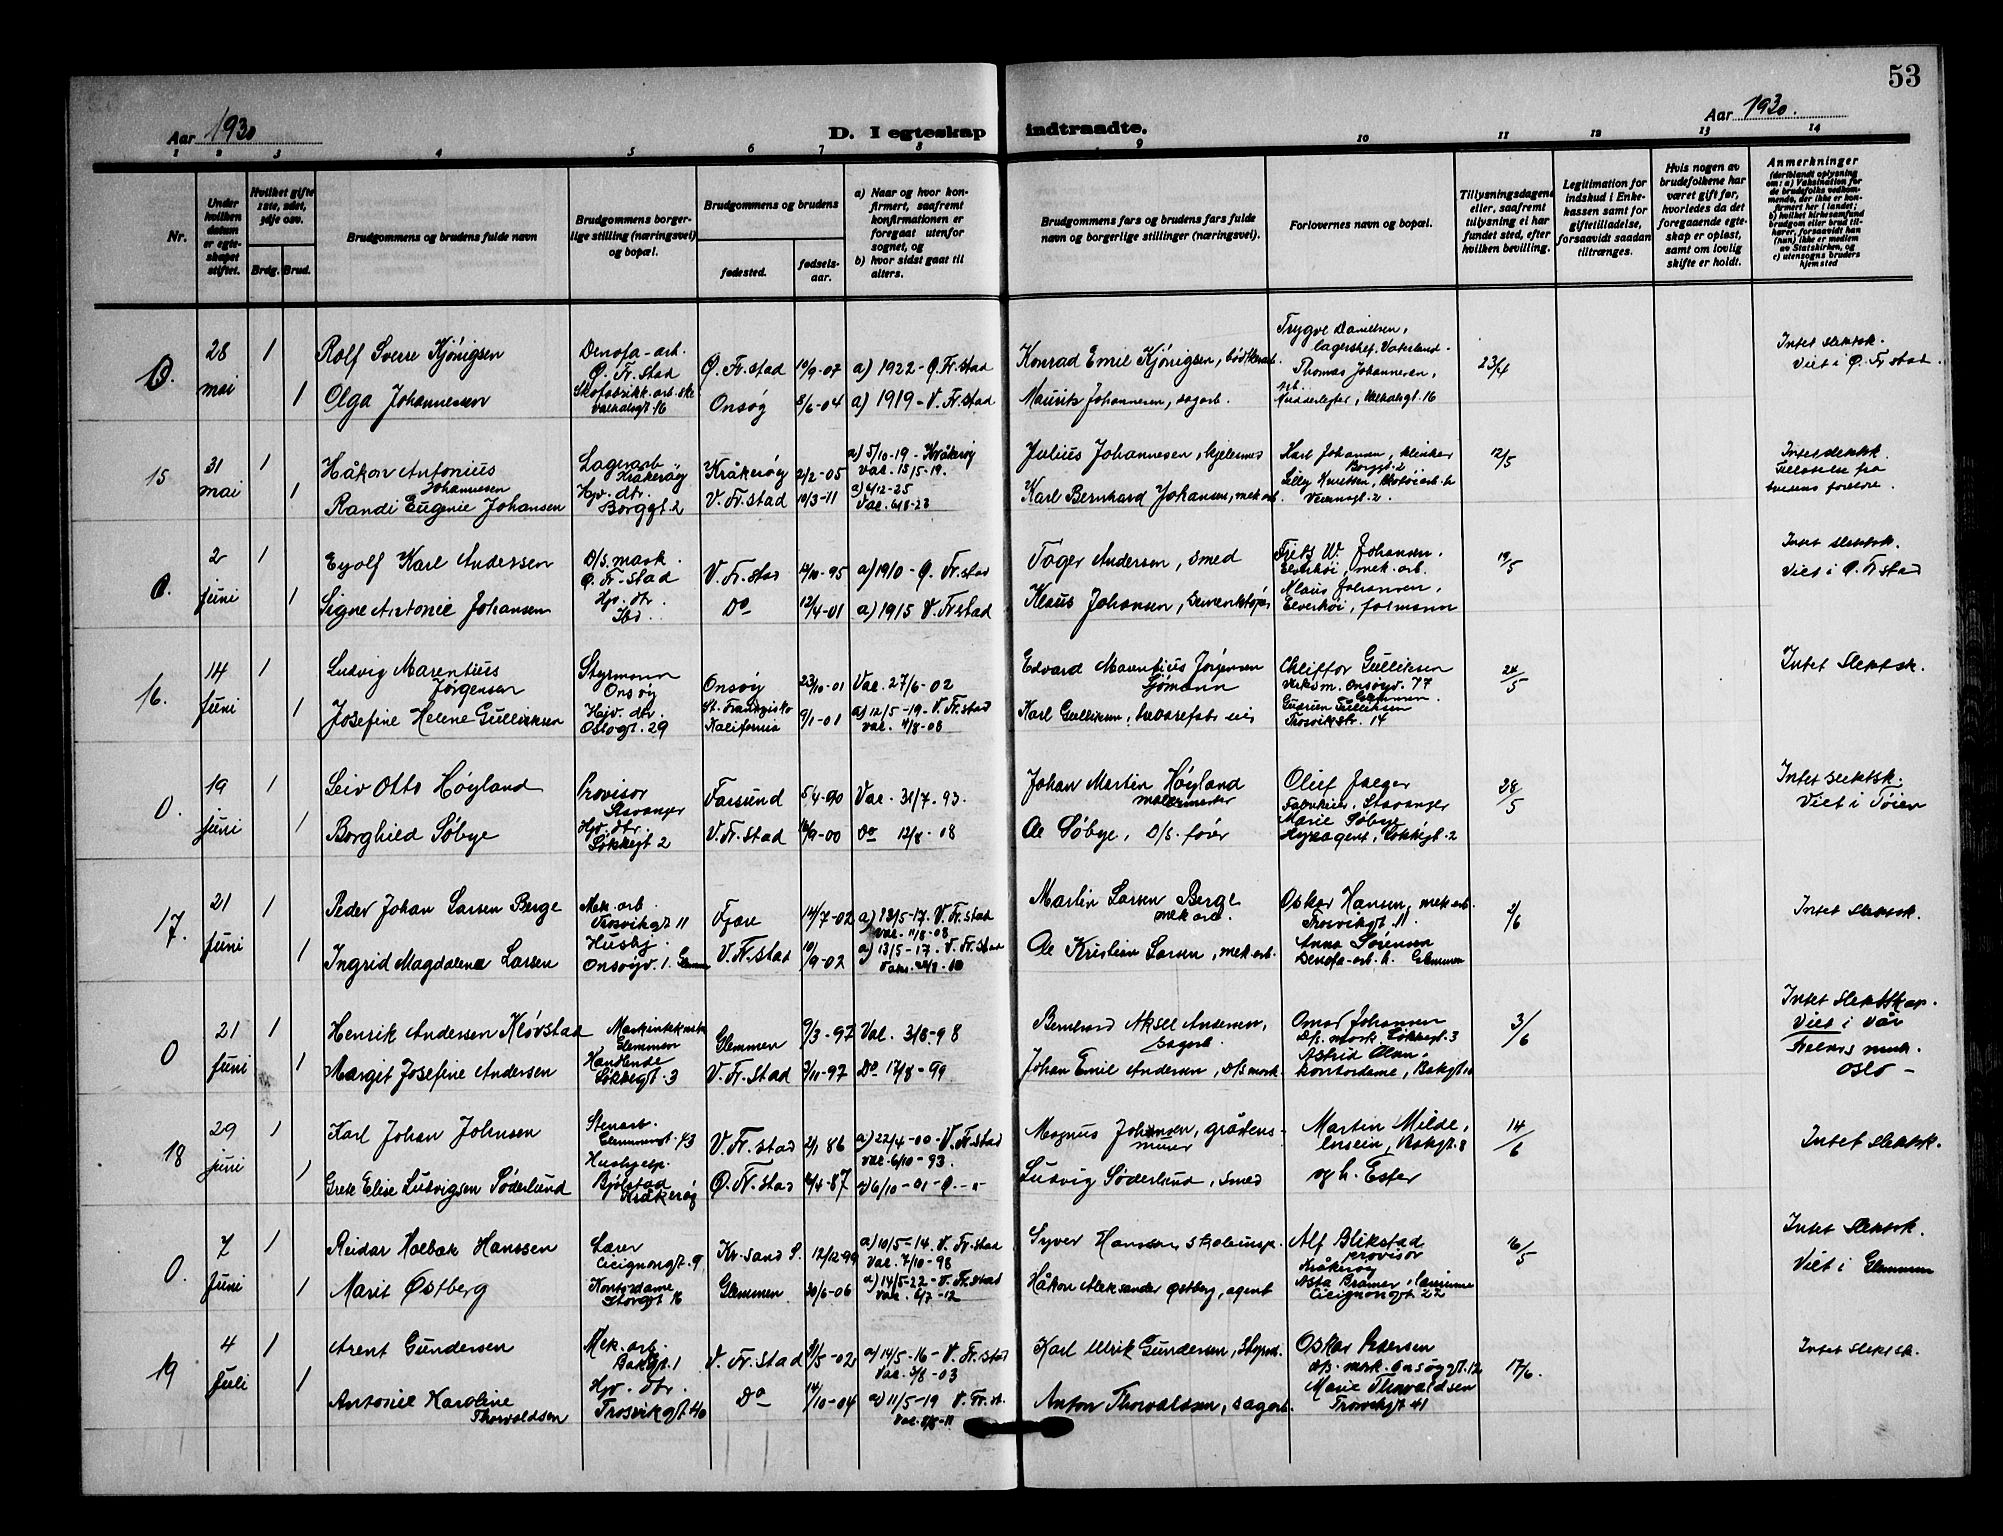 53
Aar 1930
D. I egteskap indtraadte.
Aar 1930.
1 2 3 4 5 6 7 8 9 10 11 12 13 14
Nr.
Under hvilken datum er egteskapet stiftet.
Hvilket gifte 1ste, 2det, 3dje osv.
Brdg. Brud.
Brudgommens og brudens fulde navn
Brudgommens borgerlige stilling (næringsvei) og bopæl.
Brudgommens og brudens
fødested.
fødselsaar.
a) Naar og hvor konfirmert, saafremt konfirmationen er foregaat utenfor sognet, og
b) hvor sidst gaat til alters.
Brudgommens fars og brudens fars fulde navn og borgerlige stillinger (næringsvei).
Forlovernes navn og bopæl.
Tillysningsdagene eller, saafremt tillysning ei har fundet sted, efter hvilken bevilling.
Legitimation for indskud i Enkekassen samt for giftetilladelse, forsaavidt saadan tiltrænges.
Hvis nogen av brudefolkene har været gift før, hvorledes da det foregaaende egteskap er opløst, samt om lovlig skifte er holdt.
Anmerkninger
(deriblandt oplysning om: a) Vaksination for de brudefolks vedkommende, der ikke er konfirmert her i landet;
b) hvilket kirkesamfund brudgom eller brud tilhører, forsaavidt han (hun) ikke er medlem av Statskirken, og
c) utensogns bruders hjemsted
0. 28 mai 1 Rolf Sverre Kjönigsen Denofa-arb. Ø. Fr.stad Ø. Fr.stad 19/9-07 a) 1922 - Ø. Fr.stad Konrad Emil Kjönigsen, bødtkerarb. Trygve Danielsen, lagershef, Vaterland 23/4 Intet slektsk. Viet i Ø. Fr.stad.
1 Olga Johannessen Skofabrikk-arb.ske 16 Onsøy 8/6-04 a) 1919 - V. Fr.stad Mauritz Johannesen, sagarb. Thomas Johannesen, 16
15 31 mai 1 Håkon Antonius Johannesen Lagerarb. Kråkerøy Kråkerøy 2/2-05 a) 5/10-19 - Kråkerøy Vac. 15/5-19. Julius Johannesen, hjelesmed Karl Johansen, Borggt. 2 12/5 Intet slektsk. Tillatelse fra brudens foreldre.
1 Randi Eugenie Johansen Hjv. dtr. Borggt 2 V. Fr.stad 10/3-11 a) 6/12-25 Vac. 6/8-23 Karl Bernhard Johansen, mek arb. Lilly Knutsen,
0. 2 juni 1 Eyolf Karl Anderssen D/S mask. Ø. Fr-stad V. Fr.stad 17/10-95 a) 1910 - Ø. Fr.stad Tøger Andersen, smed Fritz W. Johansen, Elverhöi, mek. arb. 19/5 Intet slektsk. Viet i Ø. Fr stad
1 Signe Antonie Johansen Hjv. dtr. Ibd. Do 12/4-01 a) 1915 V. Fr.stad Klaus Johansen, Klaus Johansen, Elverhöi, formann
16. 14 juni 1 Ludvig Marentius Jørgensen Styrmann Onsöy Onsøy 23/10-01 Vac. 27/6-02 Edvard Marentius Jørgensen Sjømann Chliffor Gulliksen Onsøyv. 77 24/5 Intet slektsk.
1 Josefine Helene Gulliksen Hjv. dtr. Oslogt. 29 St. Franzisko Kalifornia 9/1-01 a) 12/5-19. V. Fr.stad Vac. 4/8-08 Karl Gulliksen, Gudrun Gulliksen Glemmen Trosvikstr. 14
0. 19 juni 1 Leiv Otto Høyland Provisor Stavanger Farsund 5/4-90 Vac. 31/7. 93. Johan Martin Høyland malermester Oluf Jæger Stavanger 28/5 Intet slektsk. Viet i Tøien
1 Borghild Søbye Hjv. dtr. Løkkegt 2 V. Fr.stad 18/9-00 Do 12/8-08 Ole Søbye, D/S. fører Marie Søbye Løkkegt. 2
17. 21 juni 1 Peder Johan Larsen Berge Mek. arb. Trosvikgt 11 Fjære 14/7-02 a) 13/5-17. V. Fr.stad Vac. 11/8-08 Martin Larsen Berge mek arb. Oskar Hansen, mek arb. Trosvikgt. 11. 2/6 Intet slektsk.
1 Ingrid Magdalene Larsen Hushj. Onsøyv. 1. Glemmen V. Fr.stad 10/9-02 a) 13/5-17. V. Fr.stad Ole Kristian Larsen, mek arb. Anna Sørensen Denofa-arb. Glemmen
0 21 juni 1 Henrik Andersen Kløvstad Glemmen Glemmen 9/3-97 Vac. 3/8-98 Bernhard Aksel Andersen, sagarb. Omar Johansen D/S. mask. Løkkegt. 3 3/6 Intet slektskap. Viet i Vår Frelsers menh. Oslo -
1 Margit Josefine Andersen Handlende Løkkegt. 3 V. Fr.stad 3/11-97 Do 17/8-99 Johan Emil Andersen, D/S mask. Astrid Olsen. kontordame,
18 29 juni 1 Karl Johan Johnsen Stenarb. Glemmengt. 43 V. Fr.stad 2/1 86 a) 22/4-00 - V. Fr.stad Vac. 6/10-93. Magnus Johansen, gråstens-murer Martin Milde, 14/6 Intet slektsk.
1 Grete Elise Ludvigsen Søderlund Hushjelp. Bjølstad Kråkerøy Ø. Fr.stad 12/4-87 a) 6/10-01 - Ø. -"- Ludvig Søderlund, smed og h. Ester
0. 7 juni 1 Reidar Holbæk Hanssen Lærer Cicignongt. 9 Kr.sand S. 12/12-99 a) 10/5-14. V. Fr.stad Vac. 7/10-98 Syver Hanssen Alf Blikstad provisor Kråkerøy 16/5 Intet slektsk. Viet i Glemmen
1 Marit Østberg Kontordame Storgt 16 Glemmen 20/6-06 a) 14/5-22 - V. Fr.stad Vac. 6/7-12 Håkon Aleksander Østberg, agent Asta Bramer, Cicignongt. 22
19 4 juli 1 Arent Gundersen Mek. arb. Bakgt. 1 V. Fr.stad 31/5-02 a) 14/5-16 - V. Fr.stad Vac. 3/8-03 Karl Ulrik Gundersen, Styrm. Oskar Pedersen D/S. mask. Onsøygt. 12 17/6. Intet slektsk.
1 Antonie Karoline Thorvaldsen Hjv. dtr. Trosvikgt 40 Do 14/10-04 a) 11/5-19 V. Fr.st. Vac. 8/8-11 Anton Thorvaldsen, sagarb. Marie Thorvaldsen Trosvikgt 41